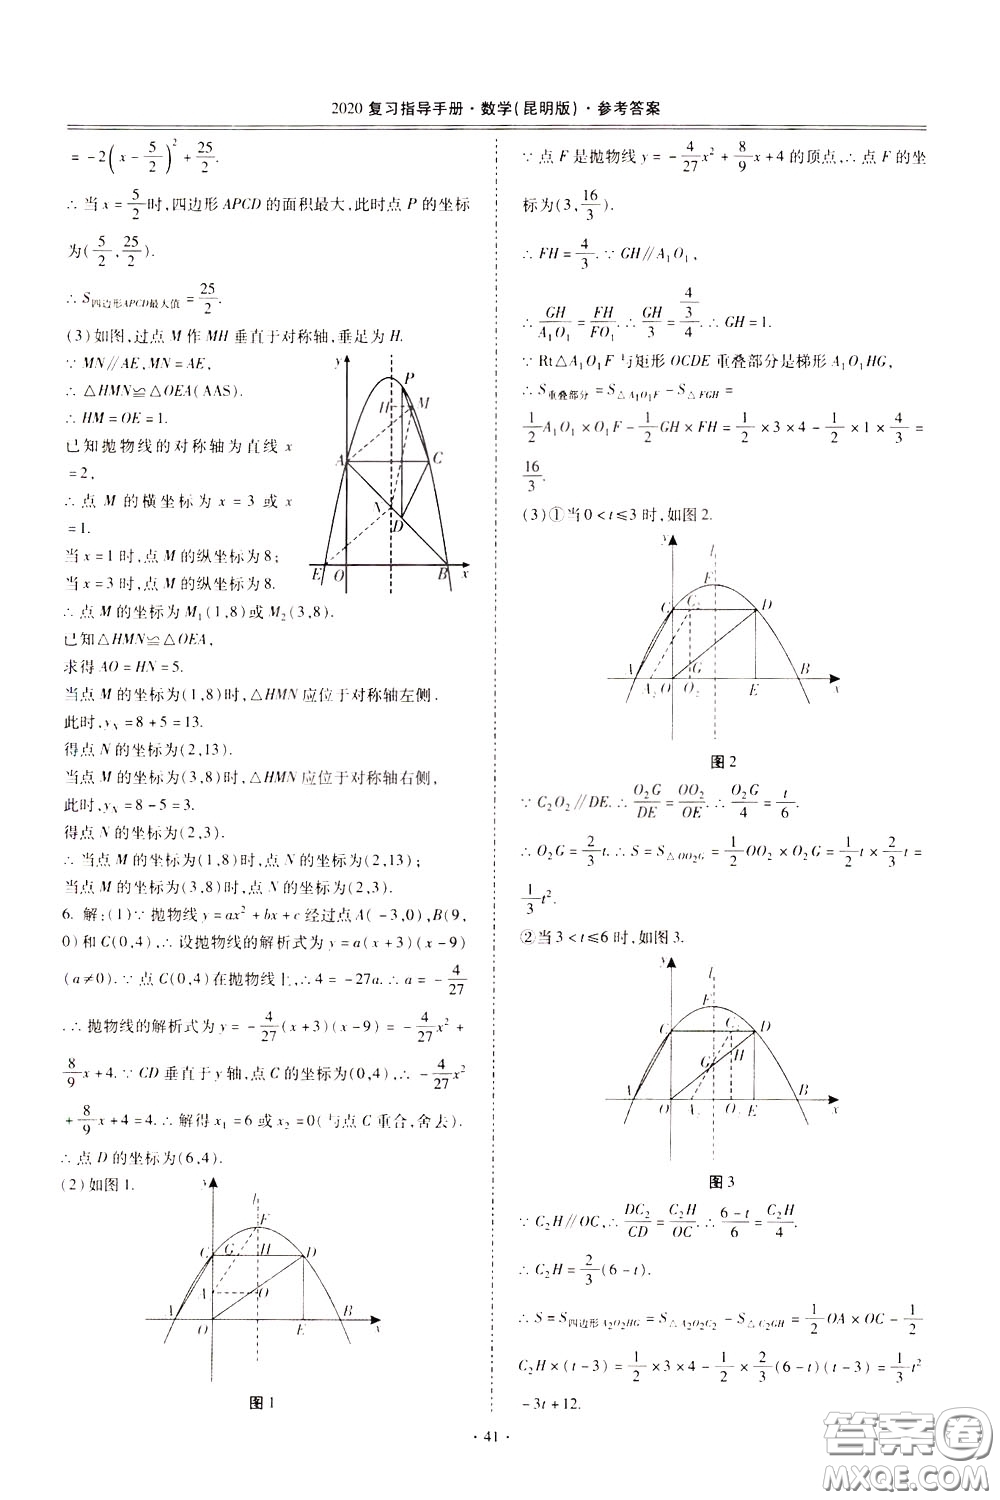 2020 复习指导手册·数学(昆明版)·参考答案
= -2(x - 5/2)² + 25/2.
∴ 当 x = 5/2 时,四边形 APCD 的面积最大,此时点 P 的坐标
为(5/2, 25/2).
∴ S四边形APCD最大值 = 25/2.
(3)如图,过点 M 作 MH 垂直于对称轴,垂足为 H.
∵ MN∥AE,MN = AE,
∴ △HMN≌△OEA(AAS).
∴ HM = OE = 1.
已知抛物线的对称轴为直线 x
= 2,
∴ 点 M 的横坐标为 x = 3 或 x
= 1.
当 x = 1 时,点 M 的纵坐标为 8;
当 x = 3 时,点 M 的纵坐标为 8.
∴ 点 M 的坐标为 M₁(1,8)或 M₂(3,8).
已知△HMN≌△OEA,
求得 AO = HN = 5.
当点 M 的坐标为(1,8)时,△HMN 应位于对称轴左侧.
此时, = 8 + 5 = 13.
得点 N 的坐标为(2,13).
当点 M 的坐标为(3,8)时,△HMN 应位于对称轴右侧,
此时, = 8 - 5 = 3.
得点 N 的坐标为(2,3).
∴ 当点 M 的坐标为(1,8)时,点 N 的坐标为(2,13);
当点 M 的坐标为(3,8)时,点 N 的坐标为(2,3).
y P H M A C N D E O B x
6. 解:(1)∵ 抛物线 y = ax² + bx + c 经过点 A(-3,0),B(9,
0)和 C(0,4),∴ 设抛物线的解析式为 y = a(x+3)(x-9)
(a≠0). ∵ 点 C(0,4)在抛物线上,∴ 4 = -27a. ∴ a = -4/27
.∴ 抛物线的解析式为 y = -4/27(x+3)(x-9) = -4/27x² +
8/9x + 4. ∵ CD 垂直于 y 轴,点 C 的坐标为(0,4),∴ -4/27x²
+ 8/9x + 4 = 4. ∴ 解得 x₁ = 6 或 x₂ = 0(与点 C 重合,舍去).
∴ 点 D 的坐标为(6,4).
(2)如图 1.
y l F C G H D A O A O E B x
图 1
∵ 点 F 是抛物线 y = -4/27x² + 8/9x + 4 的顶点,∴ 点 F 的坐
标为(3, 16/3).
∴ FH = 4/3. ∵ GH∥A₁O₁,
∴ GH/A₁O₁ = FH/FO₁. ∴ GH/3 = (4/3)/4. ∴ GH = 1.
∵ Rt△A₁O₁F 与矩形 OCDE 重叠部分是梯形 A₁O₁HG,
∴ S重叠部分 = S△A₁O₁F - S△FGH =
1/2A₁O₁ × O₁F - 1/2GH × FH = 1/2 × 3 × 4 - 1/2 × 1 × 4/3 =
16/3.
(3)①当 0 < t ≤ 3 时,如图 2.
y l F C C₂ D G A A₂ O O₂ E B x
图 2
∵ C₂O₂∥DE. ∴ O₂G/DE = OO₂/OE. ∴ O₂G/4 = t/6.
∴ O₂G = 2/3t. ∴ S = S△OO₂G = 1/2OO₂ × O₂G = 1/2 × t × 2/3t =
1/3t².
②当 3 < t ≤ 6 时,如图 3.
y l F C C₂ D G H A O A₂ O₂ E B x
图 3
∵ C₂H∥OC,∴ DC₂/CD = C₂H/OC. ∴ (6-t)/6 = C₂H/4.
∴ C₂H = 2/3(6-t).
∴ S = S四边形A₂O₂HG = S△A₂O₂C₂ - S△C₂GH = 1/2OA × OC - 1/2
C₂H × (t-3) = 1/2 × 3 × 4 - 1/2 × 2/3(6-t)(t-3) = 1/3t²
- 3t + 12.
· 41 ·
答案圈
MXQE.COM